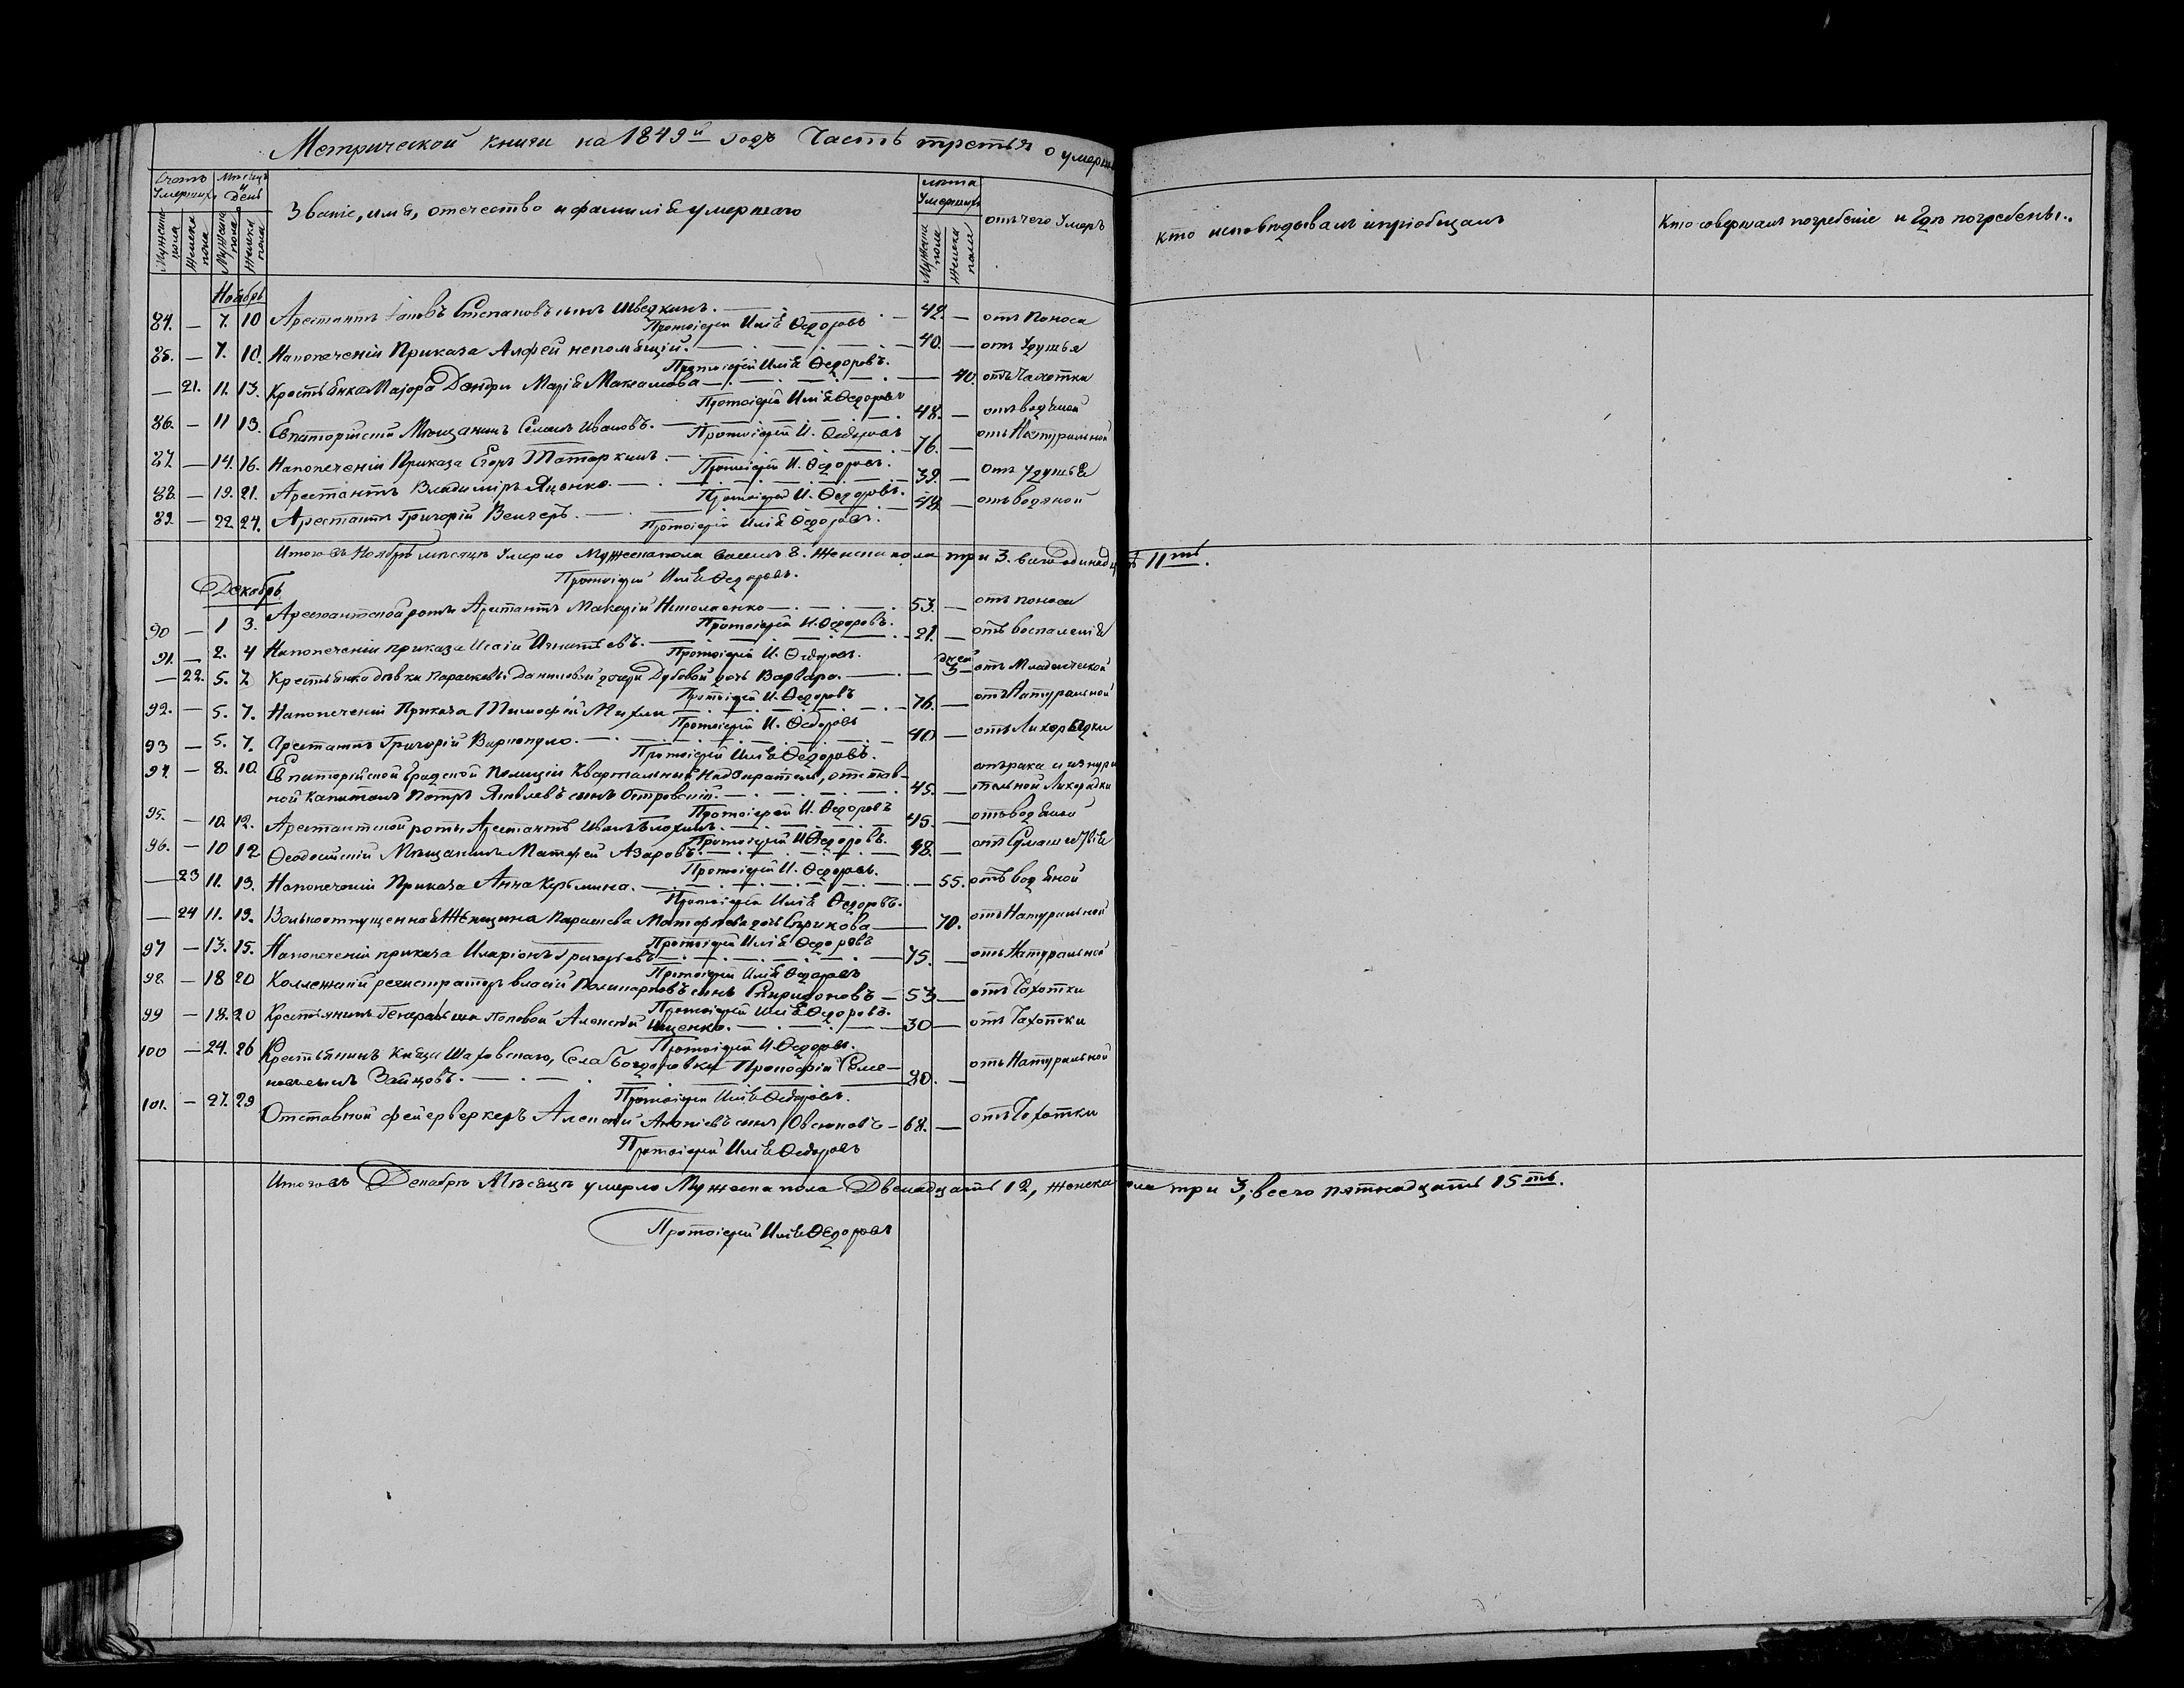 Метрической книги на 1849й годъ Часть третья о умерш
Счетъ Умершихъ
Мѣсяцъ и День
Званіе, имя, отечество и фамилія умершаго
лѣта Умершихъ
отъ чего Умеръ
кто исповѣдывалъ и пріобщалъ
Кто совершалъ погребеніе и гдѣ погребены.
Мужеска пола
Женска пола
Мужеска пола
Женска пола
Мужеска пола
Женска пола
Ноябрь
84. — 7. 10 Арестантъ Степановъ сынъ Шведкинъ. — 42 — отъ поноса
Протоіерей Илія Ѳедоровъ
85. — 7. 10. На попеченіи Приказа Алфей непомнящій. — 40. — отъ удушья
Протоіерей Илія Ѳедоровъ.
— 21. 11. 13. Крестьянка Маіора Марія Максимова — 40. отъ Чахотки
Протоіерей Илія Ѳедоровъ
86. — 11 13. Евпаторійскій Мѣщанинъ Ивановъ. — 48. — отъ водяной
Протоіерей И. Ѳедоровъ
87. — 14. 16. На попеченіи Приказа Егоръ Татаркинъ — 76. — отъ Натуральной
Протоіерей И. Ѳедоровъ.
88. — 19. 21. Арестантъ Владиміръ Яценко. — 39. — отъ удушья
Протоіерей И. Ѳедоровъ.
89. — 22. 24. Арестантъ Григорій Венгеръ. — 48. — отъ водяной
Протоіерей Илія Ѳедоровъ.
Итого въ Ноябрѣ мѣсяцѣ Умерло Мужеска пола восемь 8. Женска пола три 3. всего одинадцать 11ть.
Протоіерей Илія Ѳедоровъ.
Декабрь
90 — 1 3. Арестантской роты Арестантъ Макарій — 53. — отъ поноса
Протоіерей И. Ѳедоровъ.
91. — 2. 4 На попеченіи приказа Исаія Игнатьевъ. — 21. — отъ воспаленія
Протоіерей И. Ѳедоровъ.
— 22. 5. 7 Крестьянка дѣвки Параскевы Даниловой дочери Дубовой дочь Варвара. — дней 3 — отъ Младенческой
Протоіерей И. Ѳедоровъ
92. — 5. 7. На попеченіи Приказа Тимофей — 76. — отъ Натуральной
Протоіерей И. Ѳедоровъ
93 — 5. 7. Арестантъ Григорій — 40 — отъ Лихорадки
Протоіерей Илія Ѳедоровъ.
94. — 8. 10. Евпаторійской Градской Полиціи Квартальный Надзиратель, отстав- отъ рака и изнури
ной Капитанъ Петръ Яковлевъ сынъ Островскій. — 45. — тельной Лихорадки
Протоіерей И. Ѳедоровъ
95. — 10. 12. Арестантской роты Арестантъ Иванъ — 45. — отъ водяной
Протоіерей И. Ѳедоровъ.
96. — 10 12 Ѳеодосійскій Мѣщанинъ Матѳей Азаровъ. — 48. — отъ Сумашествія
Протоіерей И. Ѳедоровъ.
— 23 11. 13. На попеченіи Приказа Анна Кузьмина. — 55. отъ водяной
Протоіерей Илія Ѳедоровъ.
— 24 11. 13. Вольноотпущенная Женщина Матѳѣева дочь — 70. отъ Натуральной
Протоіерей Илія Ѳедоровъ
97 — 13. 15. На попеченіи приказа Иларіонъ Григорьевъ — 75. — отъ Натуральной
Протоіерей Илія Ѳедоровъ
98 — 18 20 Коллежскій регистраторъ Власій Поликарповъ сынъ Спиридоновъ — 53 — отъ Чахотки
Протоіерей Илія Ѳедоровъ.
99 — 18. 20 Крестьянинъ Генеральши Поповой Алексей Ищенко. — 30 — отъ Чахотки
Протоіерей И. Ѳедоровъ.
100 — 24. 26 Крестьянинъ Князя Шаховскаго, Села Богдановки Прокофій Семе- отъ Натуральной
Зайцовъ. — 80. —
Протоіерей Илія Ѳедоровъ.
101. — 27. 29 Отставной фейерверкеръ Алексей Ананіевъ сынъ Овсюковъ — 68. — отъ Чахотки
Протоіерей Илія Ѳедоровъ
Итого въ Декабрѣ Мѣсяцѣ умерло Мужеска пола Двенадцать 12, женска пола три 3, всего пятнадцать 15ть.
Протоіерей Илія Ѳедоровъ